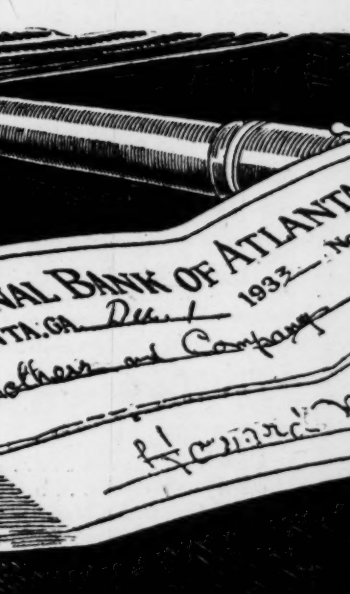 NAL BANK OF ATLANTA
NTA, GA. Dec. 1 1933 No
others and Company